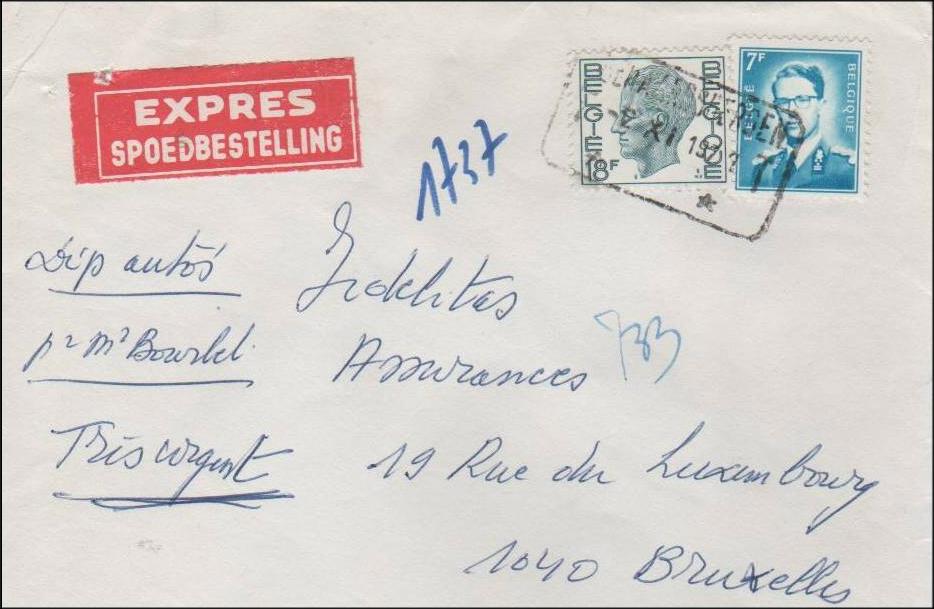 EXPRES
SPOEDBESTELLING
BELGIE BELGIQUE
18F
7F
BELGIË BELGIQUE
XI 197
1737
Dip autos
pr Mr
Très urgent
Fidelitas
Assurances
733
19 Rue du Luxembourg
1040 Bruxelles